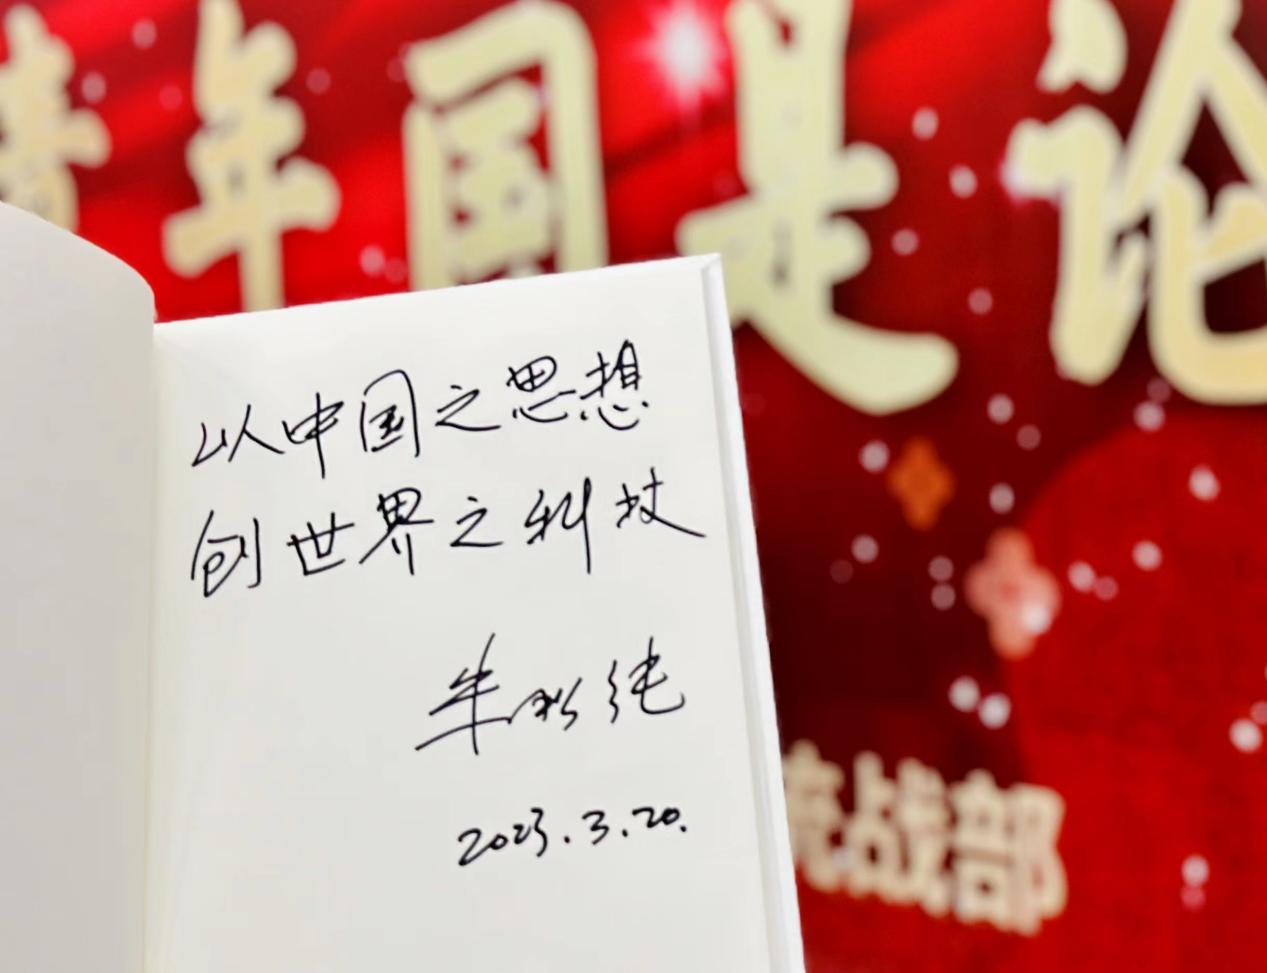 青年国是论
以中国之思想
创世界之科技
朱松纯
2023.3.20.
统战部